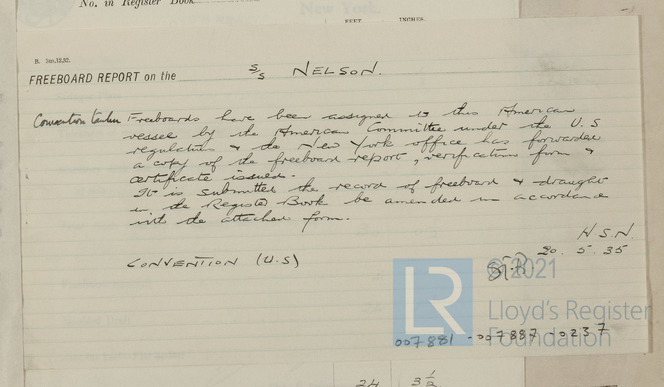 No. in Register Book
New York.
FEET. INCHES.
R. 3m.12.32.
FREEBOARD REPORT on the S/S NELSON.
Convention tanker Freeboards have been assigned to this American
vessel by the American Committee under the U.S
regulations & the New York office has forwarded
a copy of the freeboard report, verification form &
certificate issued.
It is submitted the record of freeboard & draught
in the Register Book be amended in accordance
with the attached form.
H.S.N.
20. 5. 35
CONVENTION (U.S)
© 2021
LR
Lloyd's Register
Foundation
007881 - 007887 - 0237
24 3 1/2